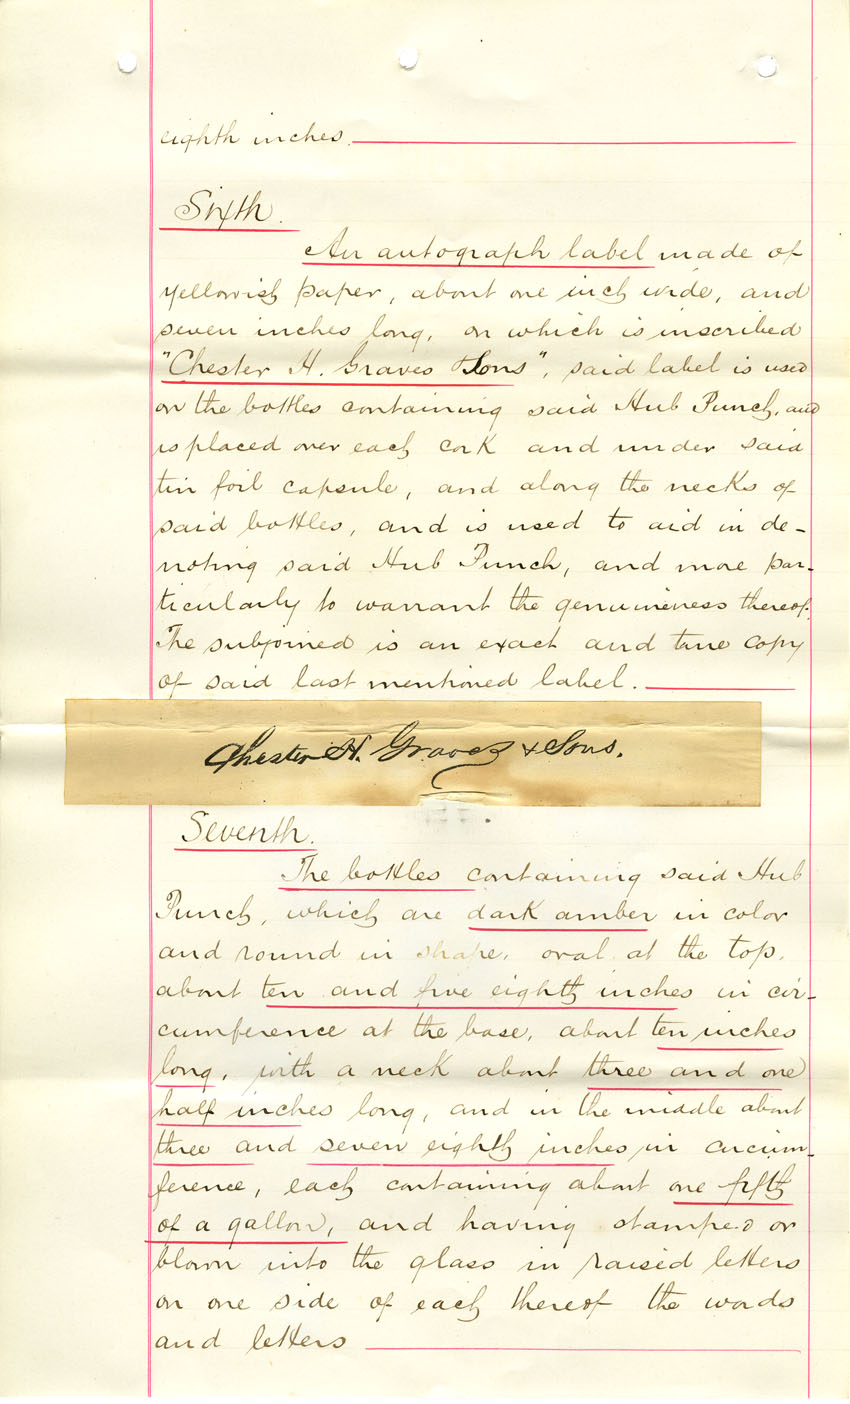 eighth inches.
Sixth.
An autograph label made of
yellowish paper, about one inch wide, and
seven inches long, on which is inscribed
"Chester H. Graves & Sons", said label is used
on the bottles containing said Hub Punch, and
is placed over each cork and under said
tin foil capsule, and along the necks of
said bottles, and is used to aid in de-
noting said Hub Punch, and more par-
ticularly to warrant the genuineness thereof.
The subjoined is an exact and true copy
of said last mentioned label.
Chester H. Graves & Sons.
Seventh.
The bottles containing said Hub
Punch, which are dark amber in color
and round in shape, oval at the top,
about ten and five eighth inches in cir-
cumference at the base, about ten inches
long, with a neck about three and one
half inches long, and in the middle about
three and seven eighth inches in circum-
ference, each containing about one fifth
of a gallon, and having stamped or
blown into the glass in raised letters
on one side of each thereof the words
and letters